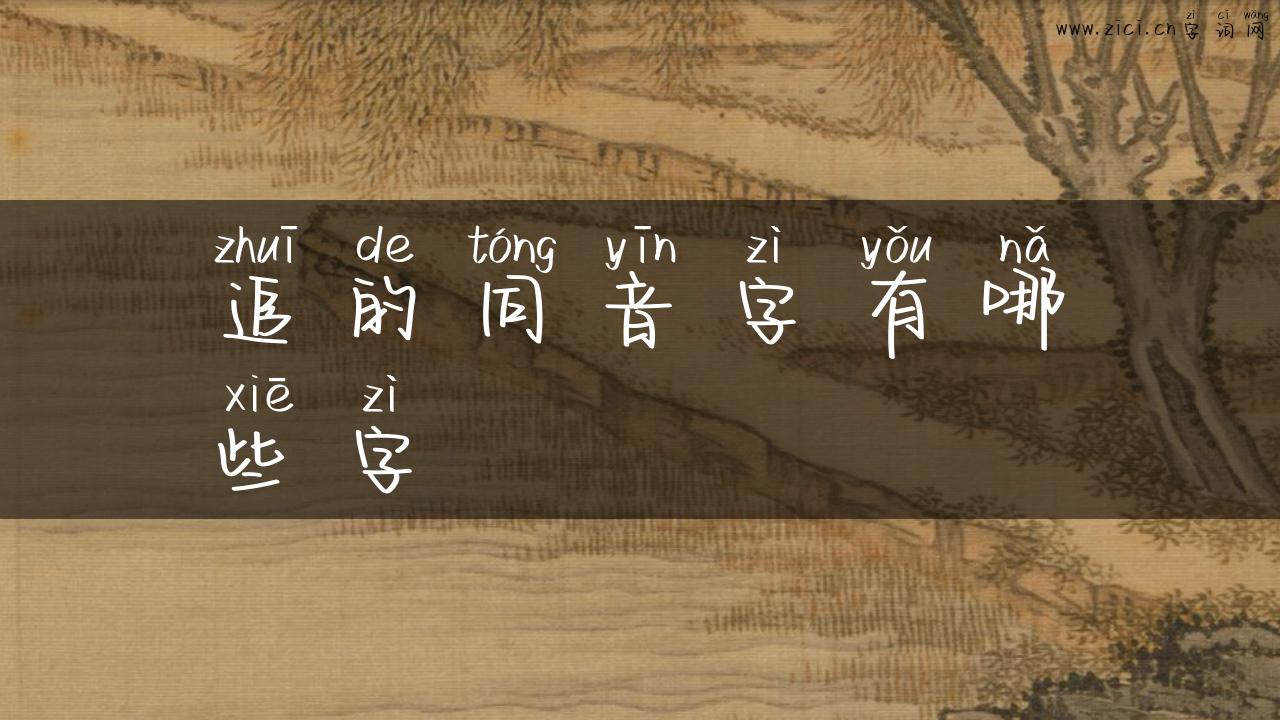 zì cí wǎng
www.zici.cn 字 词 网
zhuī de tóng yīn zì yǒu nǎ
追 的 同 音 字 有 哪
xiē zì
些 字